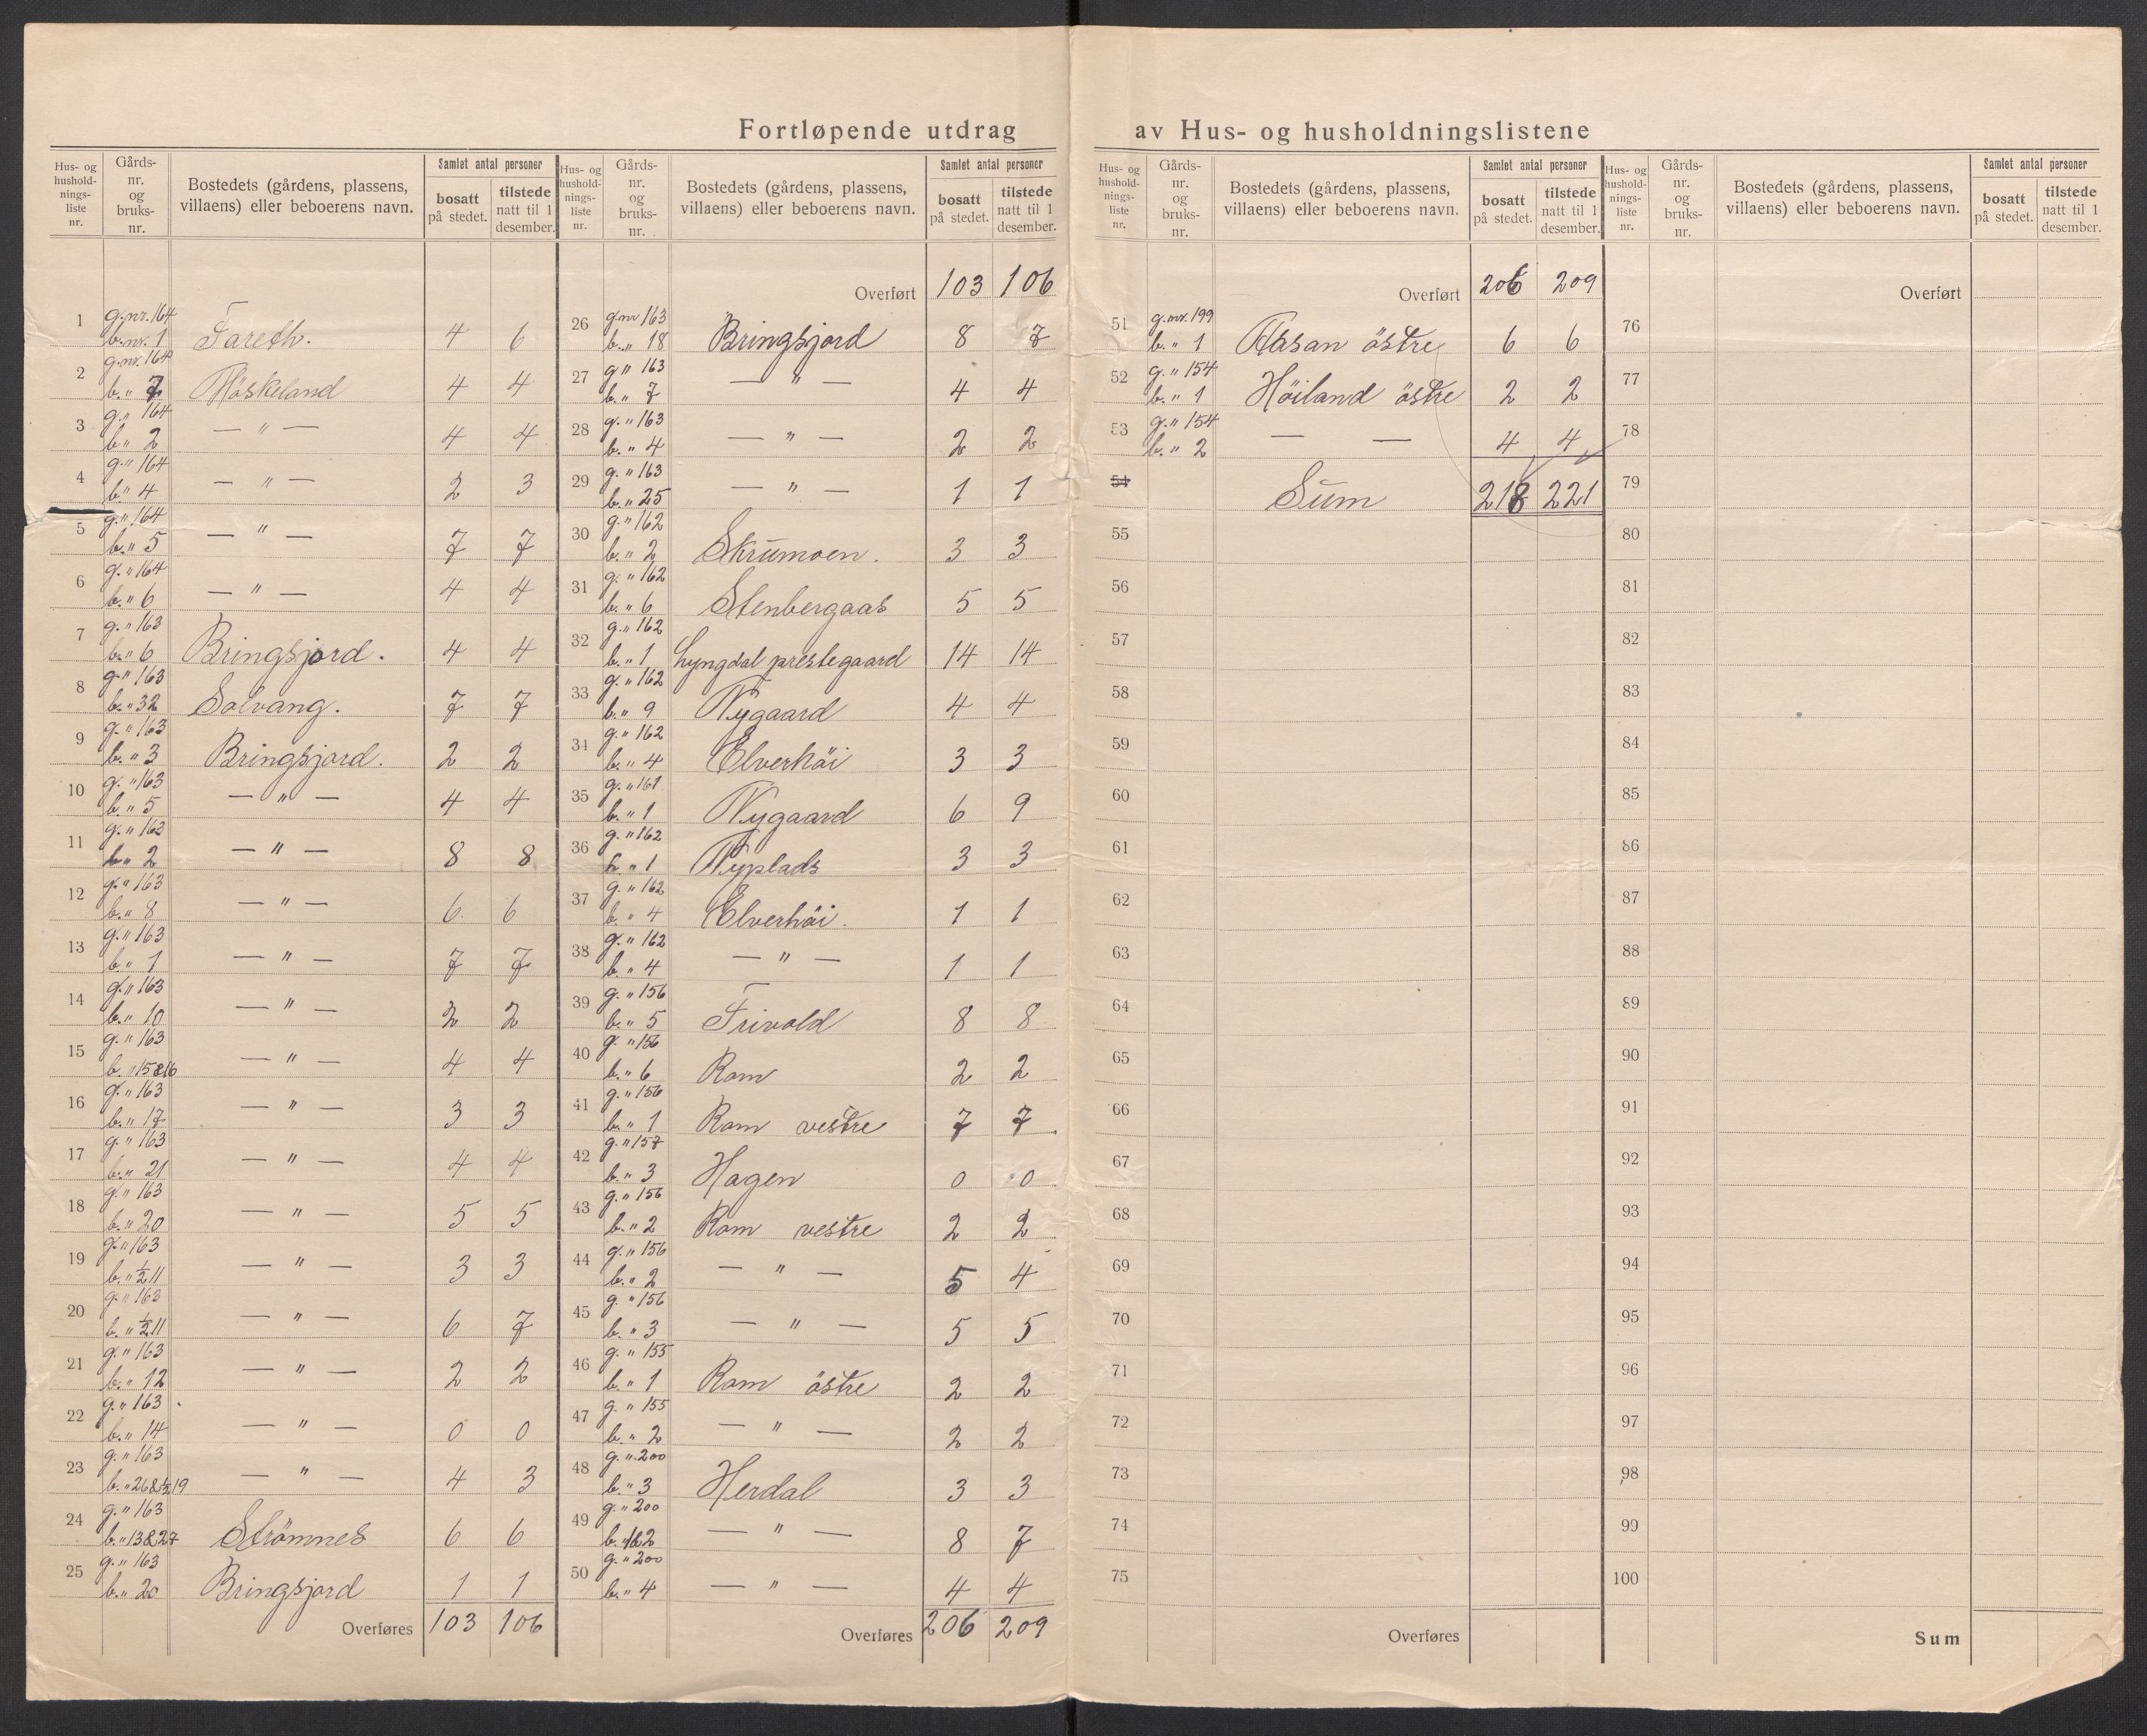 Fortløpende utdrag av Hus- og husholdningslistene
Hus- og husholdnings-liste nr. | Gårds-nr. og bruks-nr. | Bostedets (gårdens, plassens, villaens) eller beboerens navn. | Samlet antal personer | bosatt på stedet. | tilstede natt til 1 desember.
1 g.nr. 164 b.nr. 1 Fareth. 4 6
2 g.nr. 164 b. " 7 Høskeland 4 4
3 g. " 164 b. " 2 — " — 4 4
4 g. " 164 b. " 4 — " — 2 3
5 g. " 164 b. " 5 — " — 7 7
6 g. " 164 b. " 6 — " — 4 4
7 g. " 163 b. " 6 Bringsjord. 4 4
8 g. " 163 b. " 32 Solvang. 7 7
9 g. " 163 b. " 3 Bringsjord. 2 2
10 g. " 163 b. " 5 — " — 4 4
11 g. " 163 b. " 2 — " — 8 8
12 g. " 163 b. " 8 — " — 6 6
13 g. " 163 b. " 1 — " — 7 7
14 g. " 163 b. " 10 — " — 2 2
15 g. " 163 b. " 15&16 — " — 4 4
16 g. " 163 b. " 17 — " — 3 3
17 g. " 163 b. " 21 — " — 4 4
18 g. " 163 b. " 20 — " — 5 5
19 g. " 163 b. " ½ 11 — " — 3 3
20 g. " 163 b. " ½ 11 — " — 6 7
21 g. " 163 b. " 12 — " — 2 2
22 g. " 163 b. " 14 — " — 0 0
23 g. " 163 b. " 26&½19 — " — 4 3
24 g. " 163 b. " 13&27 Strömnes 6 6
25 g. " 163 b. " 20 Bringsjord 1 1
Overføres 103 106
Hus- og husholdnings-liste nr. | Gårds-nr. og bruks-nr. | Bostedets (gårdens, plassens, villaens) eller beboerens navn. | Samlet antal personer | bosatt på stedet. | tilstede natt til 1 desember.
Overført 103 106
26 g.nr 163 b. " 18 Bringsjord 8 7
27 g " 163 b. " 7 — " — 4 4
28 g. " 163 b. " 4 — " — 2 2
29 g. " 163 b. " 25 — " — 1 1
30 g. " 162 b. " 2 Skrumoen. 3 3
31 g. " 162 b. " 6 Stenbergaas 5 5
32 g. " 162 b. " 1 Lyngdal prestegaard 14 14
33 g. " 162 b. " 9 Nygaard 4 4
34 g. " 162 b. " 4 Elverhöi 3 3
35 g. " 161 b. " 1 Nygaard 6 9
36 g. " 162 b. " 1 Nyplads 3 3
37 g. " 162 b. " 4 Elverhöi. 1 1
38 g. " 162 b. " 4 — " — 1 1
39 g. " 156 b. " 5 Frivold 8 8
40 g. " 156 b. " 6 Rom 2 2
41 g. " 156 b. " 1 Rom vestre 7 7
42 g. " 157 b. " 3 Hagen 0 0
43 g. " 156 b. " 2 Rom vestre 2 2
44 g. " 156 b. " 2 — " — 5 4
45 g. " 156 b. " 3 — " — 5 5
46 g. " 155 b. " 1 Rom östre 2 2
47 g. " 155 b. " 2 — " — 2 2
48 g. " 200 b. " 3 Herdal 3 3
49 g. " 200 b. 1&2 — " — 8 7
50 g. " 200 b. " 4 — " — 4 4
Overføres 206 209
Hus- og husholdnings-liste nr. | Gårds-nr. og bruks-nr. | Bostedets (gårdens, plassens, villaens) eller beboerens navn. | Samlet antal personer | bosatt på stedet. | tilstede natt til 1 desember.
Overført 206 209
51 g.nr. 199 b. " 1 Aasan östre 6 6
52 g. " 154 b. " 1 Höiland östre 2 2
53 g. " 154 b. " 2 — — 4 4
54 Sum 218 221
55
56
57
58
59
60
61
62
63
64
65
66
67
68
69
70
71
72
73
74
75
Overføres
Hus- og husholdnings-liste nr. | Gårds-nr. og bruks-nr. | Bostedets (gårdens, plassens, villaens) eller beboerens navn. | Samlet antal personer | bosatt på stedet. | tilstede natt til 1 desember.
Overført
76
77
78
79
80
81
82
83
84
85
86
87
88
89
90
91
92
93
94
95
96
97
98
99
100
Sum